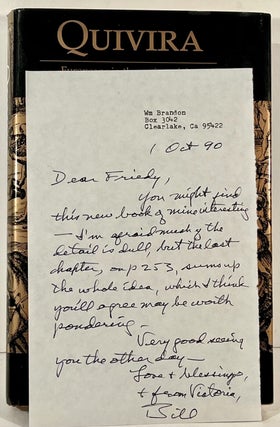 QUIVIRA
Wm Brandon
Box 3042
Clearlake, Ca 95422
1 Oct 90
Dear Friedy,
You might find
this new book of mine interesting
— I'm afraid much of the
detail is dull, but the last
chapter, on p 253, sums up
the whole idea, which I think
you'll agree may be worth
pondering —
Very good seeing
you the other day —
Love & blessings,
& from Victoria,
Bill